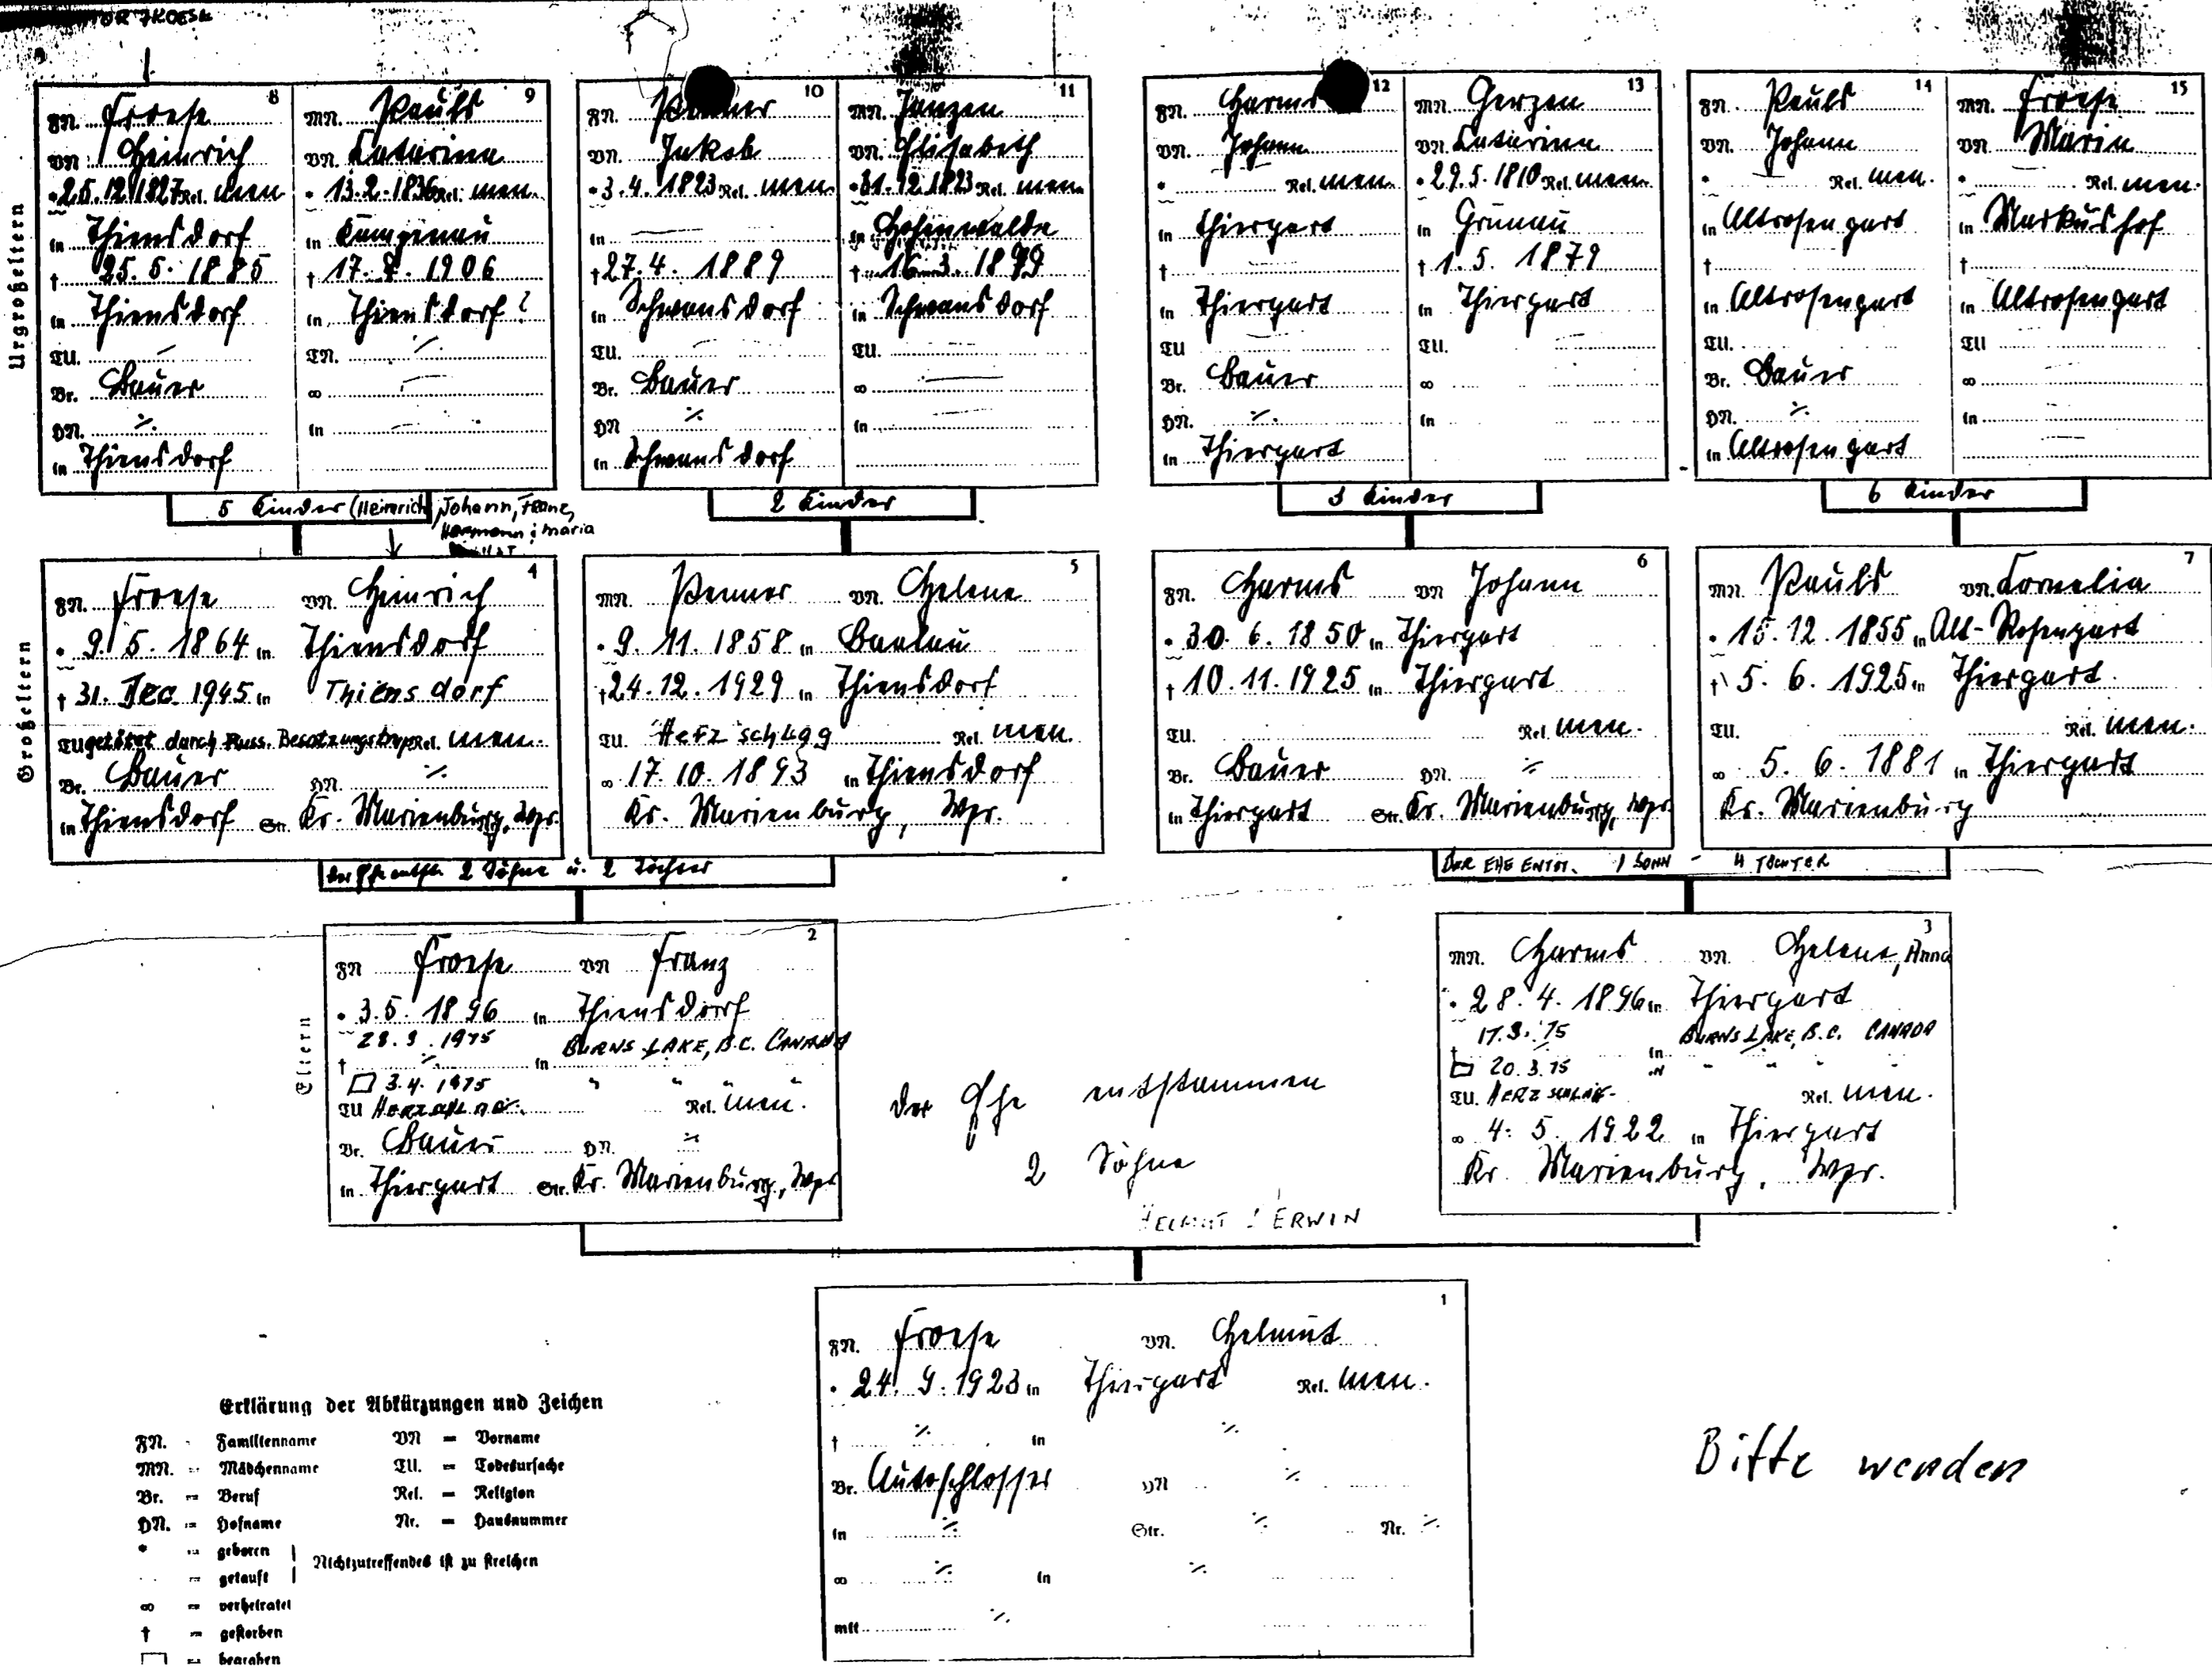 Urgroßeltern
8
FN. Froese
VN. Heinrich
* 25.12.1827 Rel. men
in Thiensdorf
† 25.5.1885
in Thiensdorf
TU. -
Br. Bauer
HN. ·/.
in Thiensdorf
9
MN. Pauls
VN. Katarina
* 13.2.1836 Rel. men.
in Kampenau
† 17.7.1906
in Thiensdorf?
TN. ·/.
∞ -
in -
10
FN. Penner
VN. Jakob
* 3.4. 1823 Rel. men.
in -
† 27.4. 1889
in Schwansdorf
TU. -
Br. Bauer
HN ·/.
in Schwansdorf
11
MN. Janzen
VN. Elisabeth
* 31.12.1823 Rel. men.
in Hohenwalde
† 16.3. 1899
in Schwansdorf
TU.
∞ -
in -
12
FN. Harms
VN. Johann
* Rel. men.
in Thiergart
†
in Thiergart
TU
Br. Bauer
HN. ·/.
in Thiergart
13
MN. Gerzen
VN. Katarina
* 29.5.1810 Rel. men.
in Grunau
† 1.5. 1879
in Thiergart
TU.
∞
in
14
FN. Pauls
VN. Johann
* Rel. men.
in Altrosengart
†
in Altrosengart
TU.
Br. Bauer
HN. ·/.
in Altrosengart
15
MN. Froese
VN Maria
* Rel. men.
in Markushof
†
in Altrosengart
TU
∞
in
5 Kinder (Heinrich, Johann, Franz,
Hermann, Maria
2 Kinder
3 Kinder
6 Kinder
Großeltern
4
FN. Froese VN Heinrich
* 9.5.1864 in Thiensdorf
† 31. Dec. 1945 in Thiensdorf
TU getötet durch Russ. Besatzungstrup Rel. men.
Br. Bauer HN ·/.
in Thiensdorf Str. Kr. Marienburg, Wpr.
5
MN. Penner VN. Helene
* 9.11.1858 in Baalau
† 24.12.1929 in Thiensdorf
TU. Herzschlag Rel. men.
∞ 17.10.1893 in Thiensdorf
Kr. Marienburg, Wpr.
6
FN. Harms VN Johann
* 30.6.1850 in Thiergart
† 10.11.1925 in Thiergart
TU. Rel. men.
Br. Bauer HN. ·/.
in Thiergart Str. Kr. Marienburg, Wpr.
7
MN. Pauls VN. Kornelia
* 15.12.1855 in Alt-Rosengart
† 5.6.1925 in Thiergart.
TU. Rel. men.
∞ 5.6.1881 in Thiergart
Kr. Marienburg
der Ehe entst. 2 Söhne u. 2 Töchter
DER EHE ENTST. 1 SOHN - 4 TÖCHTER
Eltern
2
FN Froese VN Franz
* 3.5.1896 in Thiensdorf
† 28.3.1975 in BURNS LAKE, B.C. CANADA
▭ 3.4.1975 " " " "
TU HERZSCHLAG. Rel. men.
Br. Bauer HN. ·/.
in Thiergart Str. Kr. Marienburg, Wpr
der Ehe entstammen
2 Söhne
HELMUT & ERWIN
3
MN. Harms VN. Helene, Anna
* 28.4.1896 in Thiergart
† 17.3.75 in BURNS LAKE, B.C. CANADA
▭ 20.3.75 IN " " "
TU. HERZSCHLAG. Rel. men.
∞ 4.5.1922 in Thiergart
Kr. Marienburg, Wpr.
1
FN. Froese VN. Helmut
* 24.9.1923 in Thiergart Rel. men.
† ·/. in ·/.
Br. Autoschlosser HN ·/.
in ·/. Str. ·/. Nr. ·/.
∞ ·/. in ·/.
mit ·/.
Bitte wenden
Erklärung der Abkürzungen und Zeichen
FN. = Familienname VN = Vorname
MN. = Mädchenname TU. = Todesursache
Br. = Beruf Rel. = Religion
HN. = Hofname Nr. = Hausnummer
* = geboren
= getauft
Nichtzutreffendes ist zu streichen
∞ = verheiratet
† = gestorben
▭ = begraben